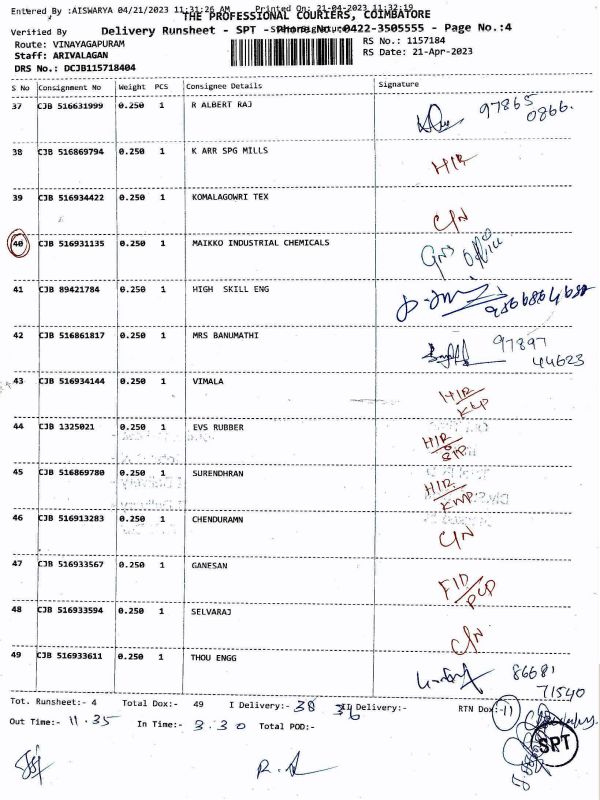 Entered By :AISWARYA 04/21/2023 11:31:26 AM Printed On: 21-04-2023 11:32:19
THE PROFESSIONAL COURIERS, COIMBATORE
Verified By Delivery Runsheet - SPT - Phone No.:0422-3505555 - Page No.:4
Route: VINAYAGAPURAM RS No.: 1157184
Staff: ARIVALAGAN RS Date: 21-Apr-2023
DRS No.: DCJB115718404
S No Consignment No Weight PCS Consignee Details Signature
37 CJB 516631999 0.250 1 R ALBERT RAJ 97865
0866.
38 CJB 516869794 0.250 1 K ARR SPG MILLS H/R
39 CJB 516934422 0.250 1 KOMALAGOWRI TEX C/N
40 CJB 516931135 0.250 1 MAIKKO INDUSTRIAL CHEMICALS office
41 CJB 89421784 0.250 1 HIGH SKILL ENG
42 CJB 516861817 0.250 1 MRS BANUMATHI 97897
44623
43 CJB 516934144 0.250 1 VIMALA H/R
44 CJB 1325021 0.250 1 EVS RUBBER H/R
45 CJB 516869780 0.250 1 SURENDHRAN H/R
46 CJB 516913283 0.250 1 CHENDURAMN C/N
47 CJB 516933567 0.250 1 GANESAN
48 CJB 516933594 0.250 1 SELVARAJ C/N
49 CJB 516933611 0.250 1 THOU ENGG 86681
71540
Tot. Runsheet:- 4 Total Dox:- 49 I Delivery:- 38 II Delivery:- RTN Dox:-11
Out Time:- 11.35 In Time:- 3.30 Total POD:-
SPT